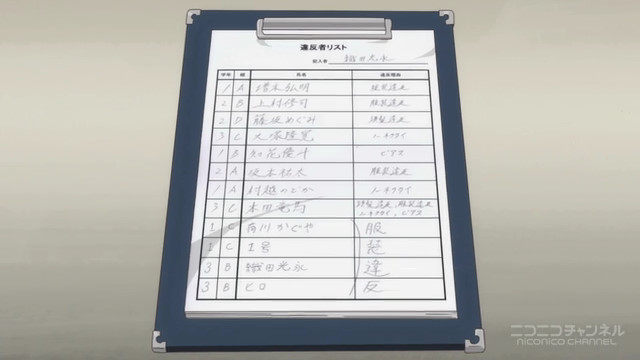 違反者リスト
記入者 織田光永
学年 組 氏名 違反理由
1 A 増本弘明 服装違反
2 B 上村修司 服装違反
2 D 藤咲めぐみ 頭髪違反
3 C 大塚隆寛 ノーネクタイ
1 B 知花隆斗 ピアス
2 A 坂本祐太 服装違反
1 A 村越のどか ノーネクタイ
3 C 本田竜馬 頭髪違反、服装違反
ノーネクタイ、ピアス
1 C 有川かぐや 服
1 C 1号 装
3 B 織田光永 違
3 B ヒロ 反
ニコニコチャンネル
NICONICO CHANNEL